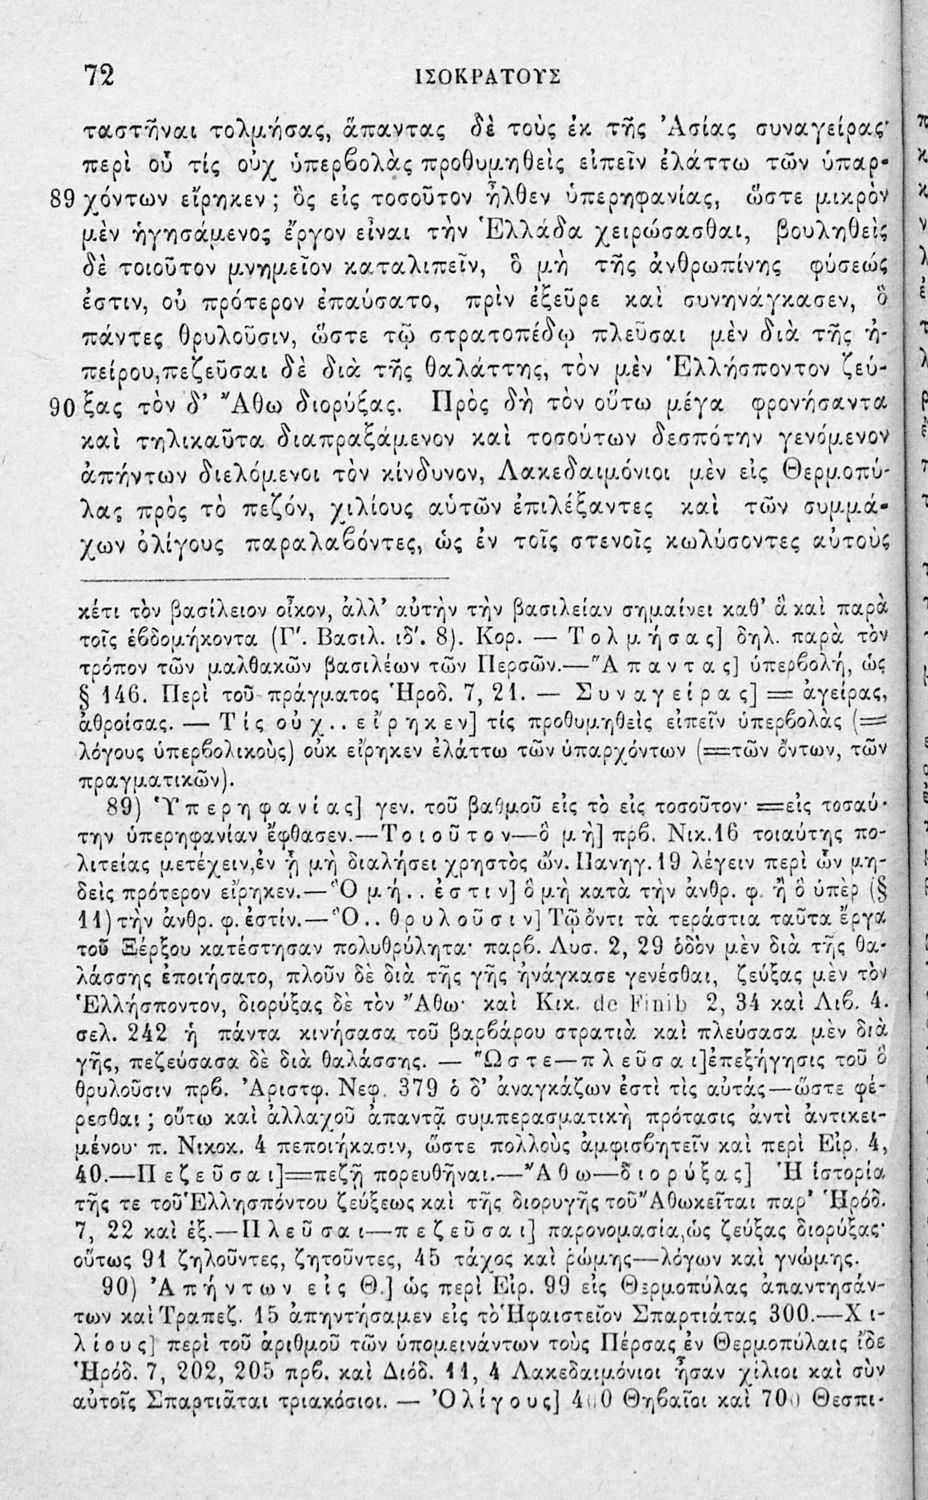 72 ΙΣΟΚΡΑΤΟΥΣ
ταστῆναι τολμήσας, ἅπαντας δὲ τοὺς ἐκ τῆς Ἀσίας συναγείρας·
περὶ οὗ τίς οὐχ ὑπερβολὰς προθυμηθεὶς εἰπεῖν ἐλάττω τῶν ὑπαρ-
89 χόντων εἴρηκεν ; ὃς εἰς τοσοῦτον ἦλθεν ὑπερηφανίας, ὥστε μικρὸν
μὲν ἡγησάμενος ἔργον εἶναι τὴν Ἑλλάδα χειρώσασθαι, βουληθεὶς
δὲ τοιοῦτον μνημεῖον καταλιπεῖν, ὃ μὴ τῆς ἀνθρωπίνης φύσεώς
ἐστιν, οὐ πρότερον ἐπαύσατο, πρὶν ἐξεῦρε καὶ συνηνάγκασεν, ὃ
πάντες θρυλοῦσιν, ὥστε τῷ στρατοπέδῳ πλεῦσαι μὲν διὰ τῆς ἠ-
πείρου,πεζεῦσαι δὲ διὰ τῆς θαλάττης, τὸν μὲν Ἑλλήσποντον ζεύ-
90 ξας τὸν δ’ Ἄθω διορύξας. Πρὸς δὴ τὸν οὕτω μέγα φρονήσαντα
καὶ τηλικαῦτα διαπραξάμενον καὶ τοσούτων δεσπότην γενόμενον
ἀπήντων διελόμενοι τὸν κίνδυνον, Λακεδαιμόνιοι μὲν εἰς Θερμοπύ-
λας πρὸς τὸ πεζόν, χιλίους αὑτῶν ἐπιλέξαντες καὶ τῶν συμμά-
χων ὀλίγους παραλαβόντες, ὡς ἐν τοῖς στενοῖς κωλύσοντες αὐτοὺς
κέτι τὸν βασίλειον οἶκον, ἀλλ’ αὐτὴν τὴν βασιλείαν σημαίνει καθ’ ἃ καὶ παρὰ
τοῖς ἑβδομήκοντα (Γ'. Βασιλ. ιδ'. 8). Κορ. — Τολμήσας] δηλ. παρὰ τὸν
τρόπον τῶν μαλθακῶν βασιλέων τῶν Περσῶν.—Ἅπαντας] ὑπερβολή, ὡς
§ 146. Περὶ τοῦ πράγματος Ἡροδ. 7, 21. — Συναγείρας] = ἀγείρας,
ἀθροίσας. — Τίς οὐχ.. εἴρηκεν] τίς προθυμηθεὶς εἰπεῖν ὑπερβολὰς (=
λόγους ὑπερβολικοὺς) οὐκ εἴρηκεν ἐλάττω τῶν ὑπαρχόντων (=τῶν ὄντων, τῶν
πραγματικῶν).
89) Ὑπερηφανίας] γεν. τοῦ βαθμοῦ εἰς τὸ εἰς τοσοῦτον· =εἰς τοσαύ-
την ὑπερηφανίαν ἔφθασεν.—Τοιοῦτον—ὃ μὴ] πρβ. Νικ.16 τοιαύτης πο-
λιτείας μετέχειν,ἐν ᾗ μὴ διαλήσει χρηστὸς ὤν. Πανηγ. 19 λέγειν περὶ ὧν μη-
δεὶς πρότερον εἴρηκεν.—Ὃ μή.. ἐστιν] ὃ μὴ κατὰ τὴν ἀνθρ. φ. ἢ ὃ ὑπὲρ (§
11) τὴν ἀνθρ. φ. ἐστίν.—Ὃ.. θρυλοῦσιν] Τῷ ὄντι τὰ τεράστια ταῦτα ἔργα
τοῦ Ξέρξου κατέστησαν πολυθρύλητα· παρβ. Λυσ. 2, 29 ὁδὸν μὲν διὰ τῆς θα-
λάσσης ἐποιήσατο, πλοῦν δὲ διὰ τῆς γῆς ἠνάγκασε γενέσθαι, ζεύξας μὲν τὸν
Ἑλλήσποντον, διορύξας δὲ τὸν Ἄθω· καὶ Κικ. de Finib 2, 34 καὶ Λιβ. 4.
σελ. 242 ἡ πάντα κινήσασα τοῦ βαρβάρου στρατιὰ καὶ πλεύσασα μὲν διὰ
γῆς, πεζεύσασα δὲ διὰ θαλάσσης. — Ὥστε—πλεῦσαι]ἐπεξήγησις τοῦ ὃ
θρυλοῦσιν πρβ. Ἀριστφ. Νεφ. 379 ὁ δ’ ἀναγκάζων ἐστὶ τίς αὐτάς—ὥστε φέ-
ρεσθαι ; οὕτω καὶ ἀλλαχοῦ ἀπαντᾷ συμπερασματικὴ πρότασις ἀντὶ ἀντικει-
μένου· π. Νικοκ. 4 πεποιήκασιν, ὥστε πολλοὺς ἀμφισβητεῖν καὶ περὶ Εἰρ. 4,
40.—Πεζεῦσαι]=πεζῇ πορευθῆναι.—Ἄθω—διορύξας] Ἡ ἱστορία
τῆς τε τοῦ Ἑλλησπόντου ζεύξεως καὶ τῆς διορυγῆς τοῦ Ἄθω κεῖται παρ’ Ἡρόδ.
7, 22 καὶ ἑξ.—Πλεῦσαι—πεζεῦσαι] παρονομασία,ὡς ζεύξας διορύξας·
οὕτως 91 ζηλοῦντες, ζητοῦντες, 45 τάχος καὶ ῥώμης—λόγων καὶ γνώμης.
90) Ἀπήντων εἰς Θ.] ὡς περὶ Εἰρ. 99 εἰς Θερμοπύλας ἀπαντησάν-
των καὶ Τραπεζ. 15 ἀπηντήσαμεν εἰς τὸ Ἡφαιστεῖον Σπαρτιάτας 300.—Χι-
λίους] περὶ τοῦ ἀριθμοῦ τῶν ὑπομεινάντων τοὺς Πέρσας ἐν Θερμοπύλαις ἴδε
Ἡρόδ. 7, 202, 205 πρβ. καὶ Διόδ. 11, 4 Λακεδαιμόνιοι ἦσαν χίλιοι καὶ σὺν
αὐτοῖς Σπαρτιᾶται τριακόσιοι. — Ὀλίγους] 400 Θηβαῖοι καὶ 700 Θεσπι-